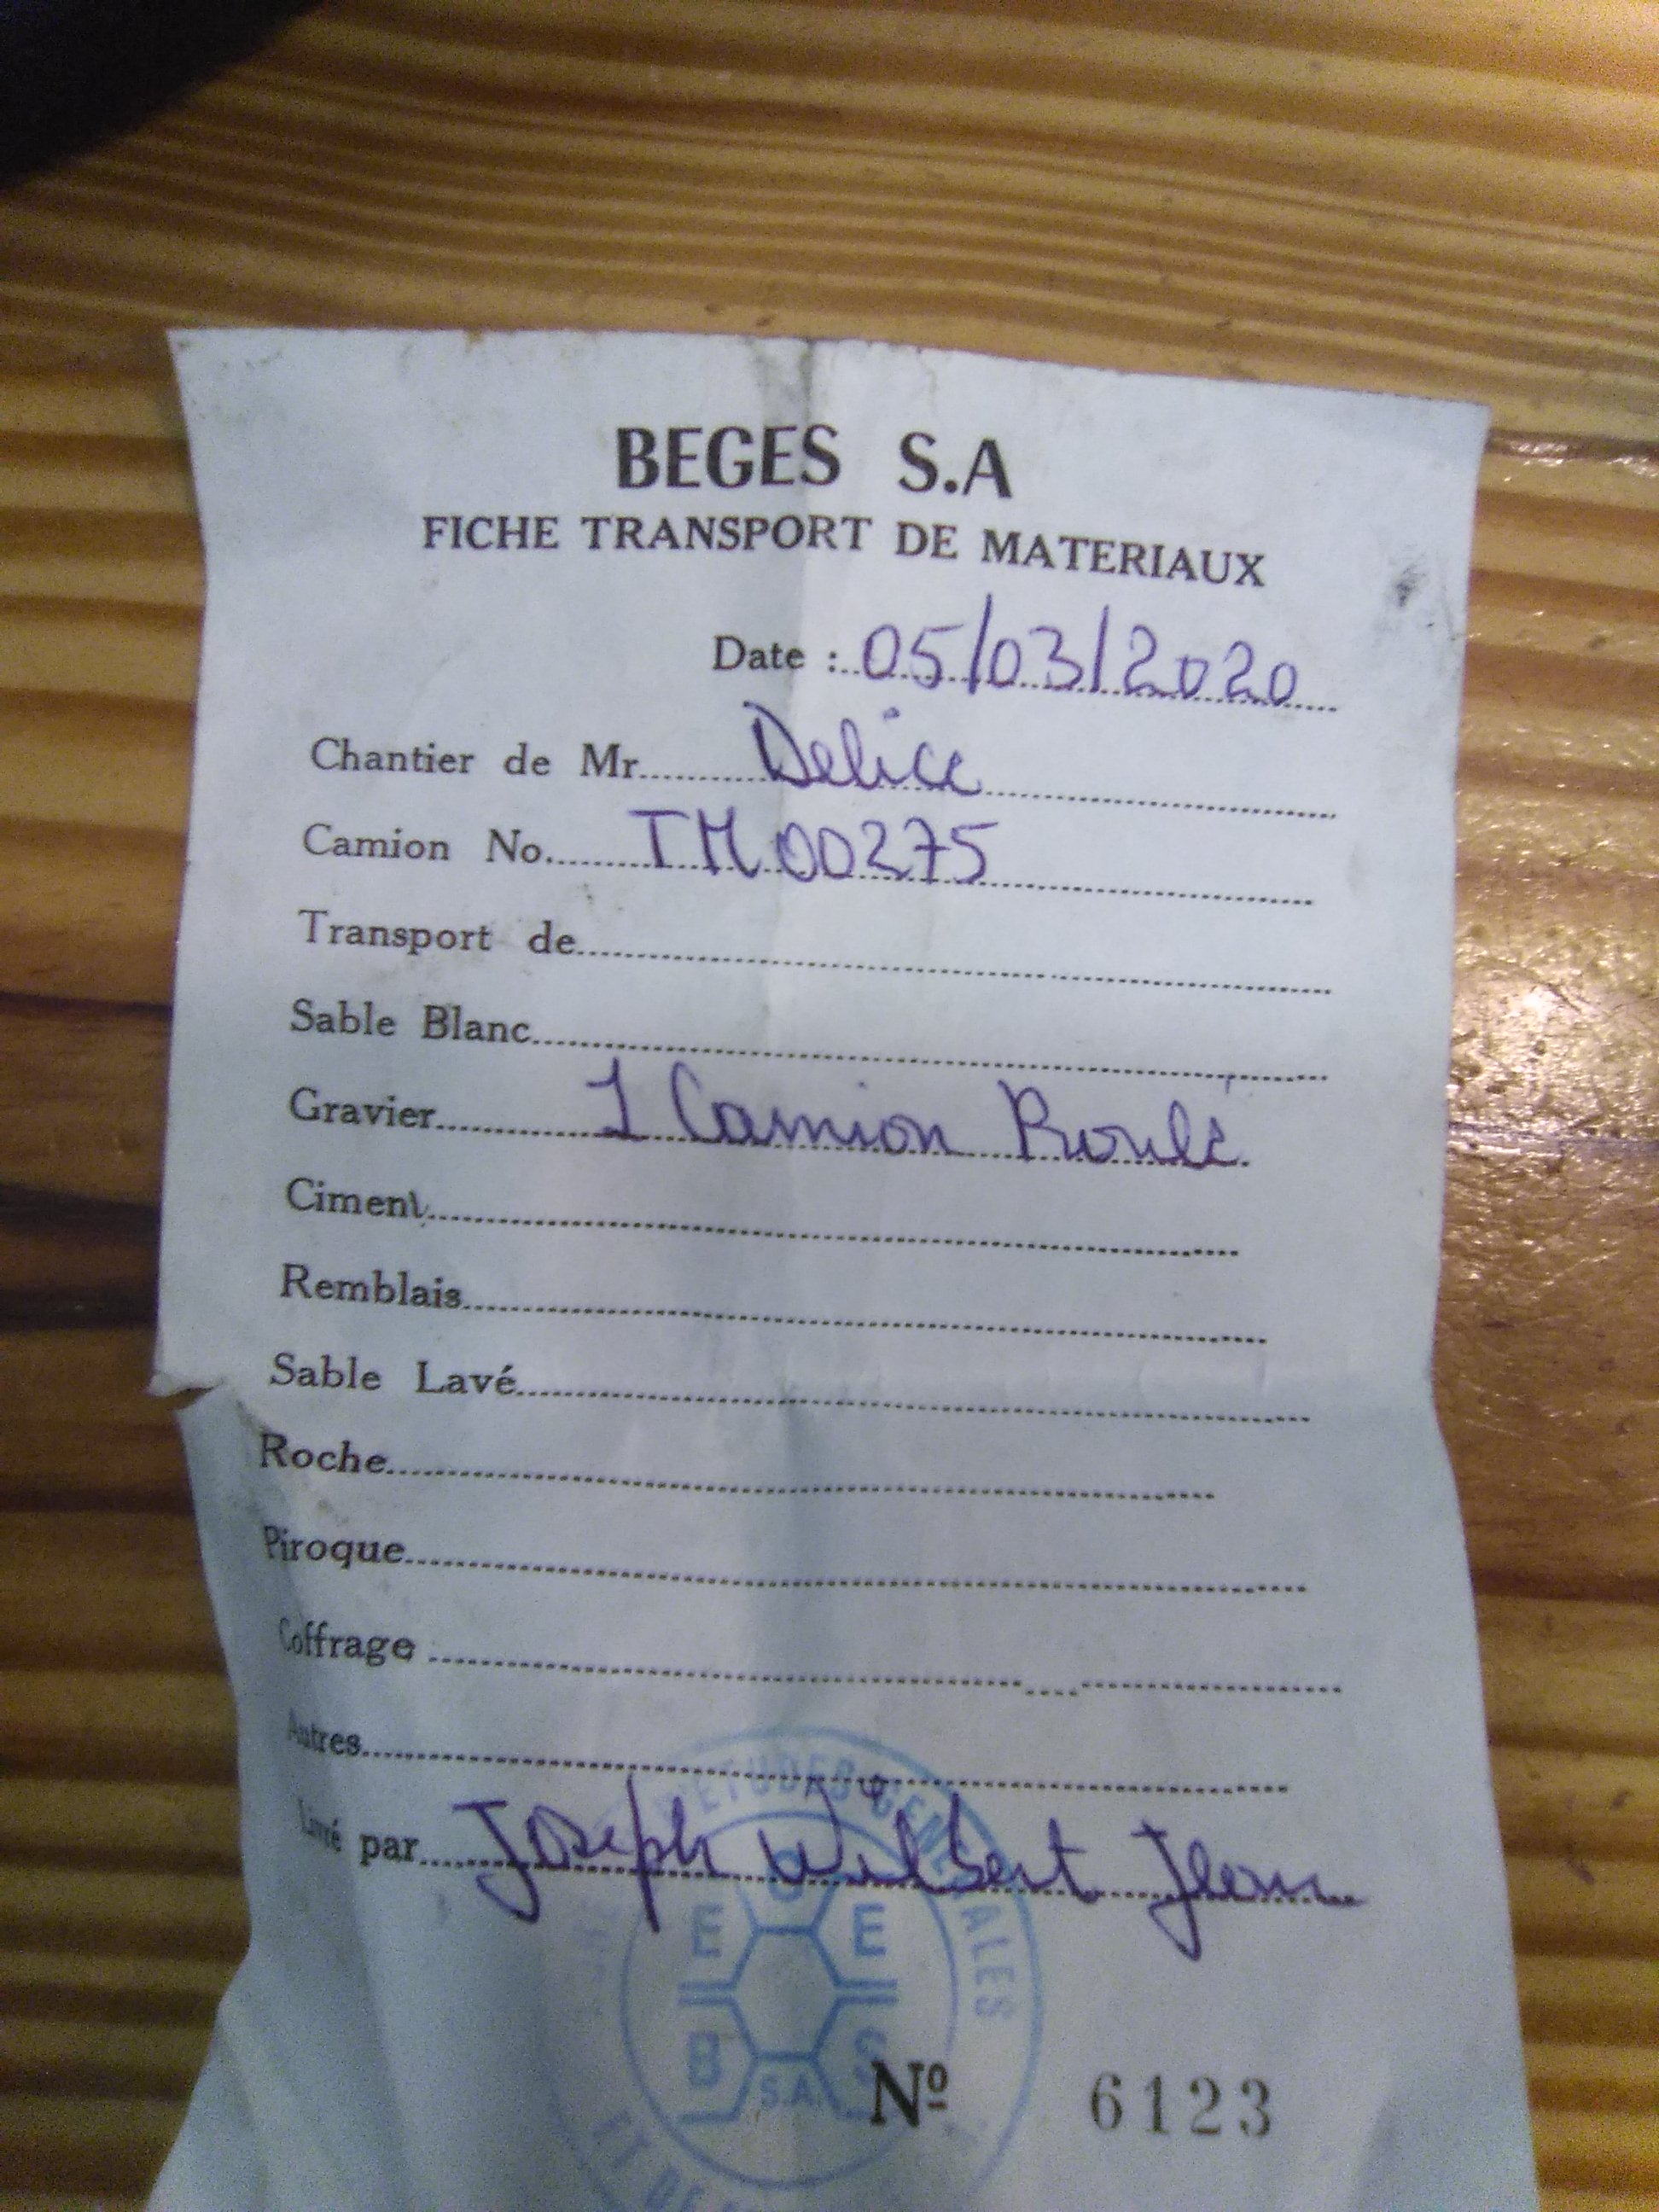 BEGES S.A
FICHE TRANSPORT DE MATERIAUX
Date : 05/03/2020
Chantier de Mr. Delice
Camion No. TM 00275
Transport de
Sable Blanc
Gravier 1 Camion Roulé
Ciment
Remblais
Sable Lavé
Roche
Piroque
Coffrage
Autres
Livré par Joseph Wilbert Jean
D'ETUDES GENERALES
G
E E
B S
S.A.
ET DE
Nº 6123